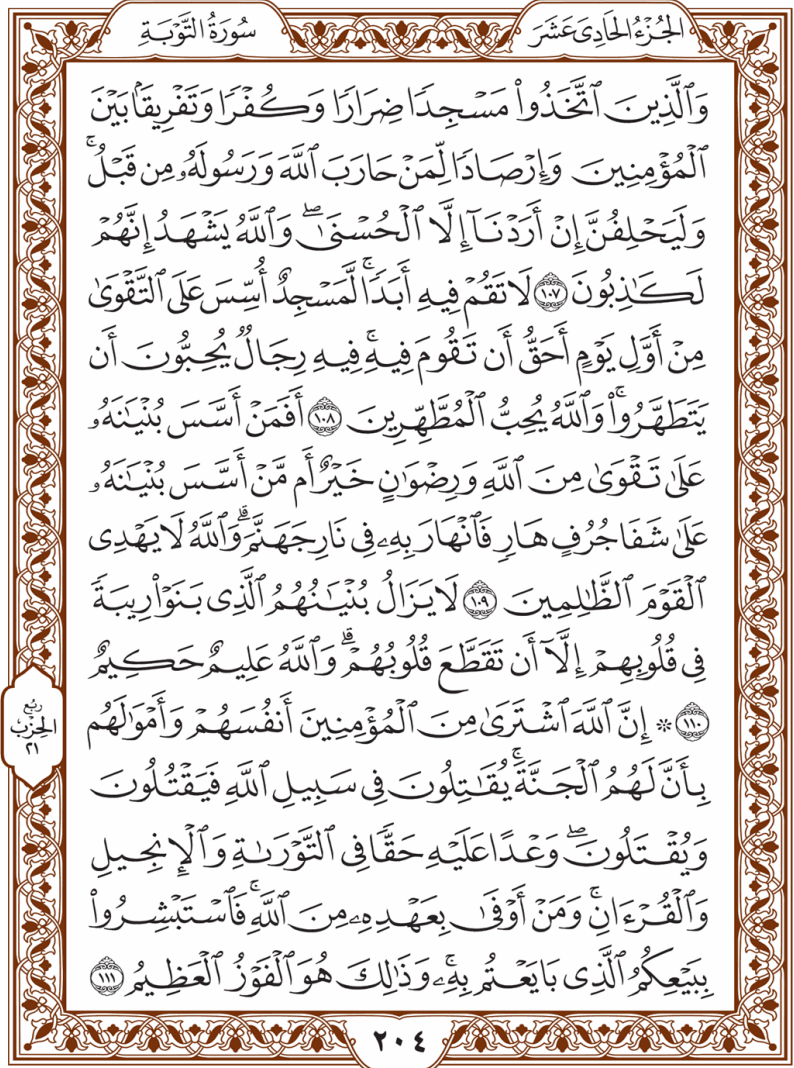 الجُزْءُ الحَادِي عَشَرَ
سُورَةُ التَّوْبَةِ
وَٱلَّذِينَ ٱتَّخَذُوا۟ مَسْجِدًا ضِرَارًا وَكُفْرًا وَتَفْرِيقًۢا بَيْنَ
ٱلْمُؤْمِنِينَ وَإِرْصَادًا لِّمَنْ حَارَبَ ٱللَّهَ وَرَسُولَهُۥ مِن قَبْلُ ۚ
وَلَيَحْلِفُنَّ إِنْ أَرَدْنَآ إِلَّا ٱلْحُسْنَىٰ ۖ وَٱللَّهُ يَشْهَدُ إِنَّهُمْ
لَكَـٰذِبُونَ ١٠٧ لَا تَقُمْ فِيهِ أَبَدًا ۚ لَّمَسْجِدٌ أُسِّسَ عَلَى ٱلتَّقْوَىٰ
مِنْ أَوَّلِ يَوْمٍ أَحَقُّ أَن تَقُومَ فِيهِ ۚ فِيهِ رِجَالٌ يُحِبُّونَ أَن
يَتَطَهَّرُوا۟ ۚ وَٱللَّهُ يُحِبُّ ٱلْمُطَّهِّرِينَ ١٠٨ أَفَمَنْ أَسَّسَ بُنْيَـٰنَهُۥ
عَلَىٰ تَقْوَىٰ مِنَ ٱللَّهِ وَرِضْوَٰنٍ خَيْرٌ أَم مَّنْ أَسَّسَ بُنْيَـٰنَهُۥ
عَلَىٰ شَفَا جُرُفٍ هَارٍ فَٱنْهَارَ بِهِۦ فِى نَارِ جَهَنَّمَ ۗ وَٱللَّهُ لَا يَهْدِى
ٱلْقَوْمَ ٱلظَّـٰلِمِينَ ١٠٩ لَا يَزَالُ بُنْيَـٰنُهُمُ ٱلَّذِى بَنَوْا۟ رِيبَةً
فِى قُلُوبِهِمْ إِلَّآ أَن تَقَطَّعَ قُلُوبُهُمْ ۗ وَٱللَّهُ عَلِيمٌ حَكِيمٌ
١١٠ ۞ إِنَّ ٱللَّهَ ٱشْتَرَىٰ مِنَ ٱلْمُؤْمِنِينَ أَنفُسَهُمْ وَأَمْوَٰلَهُم
بِأَنَّ لَهُمُ ٱلْجَنَّةَ ۚ يُقَـٰتِلُونَ فِى سَبِيلِ ٱللَّهِ فَيَقْتُلُونَ
وَيُقْتَلُونَ ۖ وَعْدًا عَلَيْهِ حَقًّا فِى ٱلتَّوْرَىٰةِ وَٱلْإِنجِيلِ
وَٱلْقُرْءَانِ ۚ وَمَنْ أَوْفَىٰ بِعَهْدِهِۦ مِنَ ٱللَّهِ ۚ فَٱسْتَبْشِرُوا۟
بِبَيْعِكُمُ ٱلَّذِى بَايَعْتُم بِهِۦ ۚ وَذَٰلِكَ هُوَ ٱلْفَوْزُ ٱلْعَظِيمُ ١١١
رُبُع
الحِزْب
٢١
٢٠٤